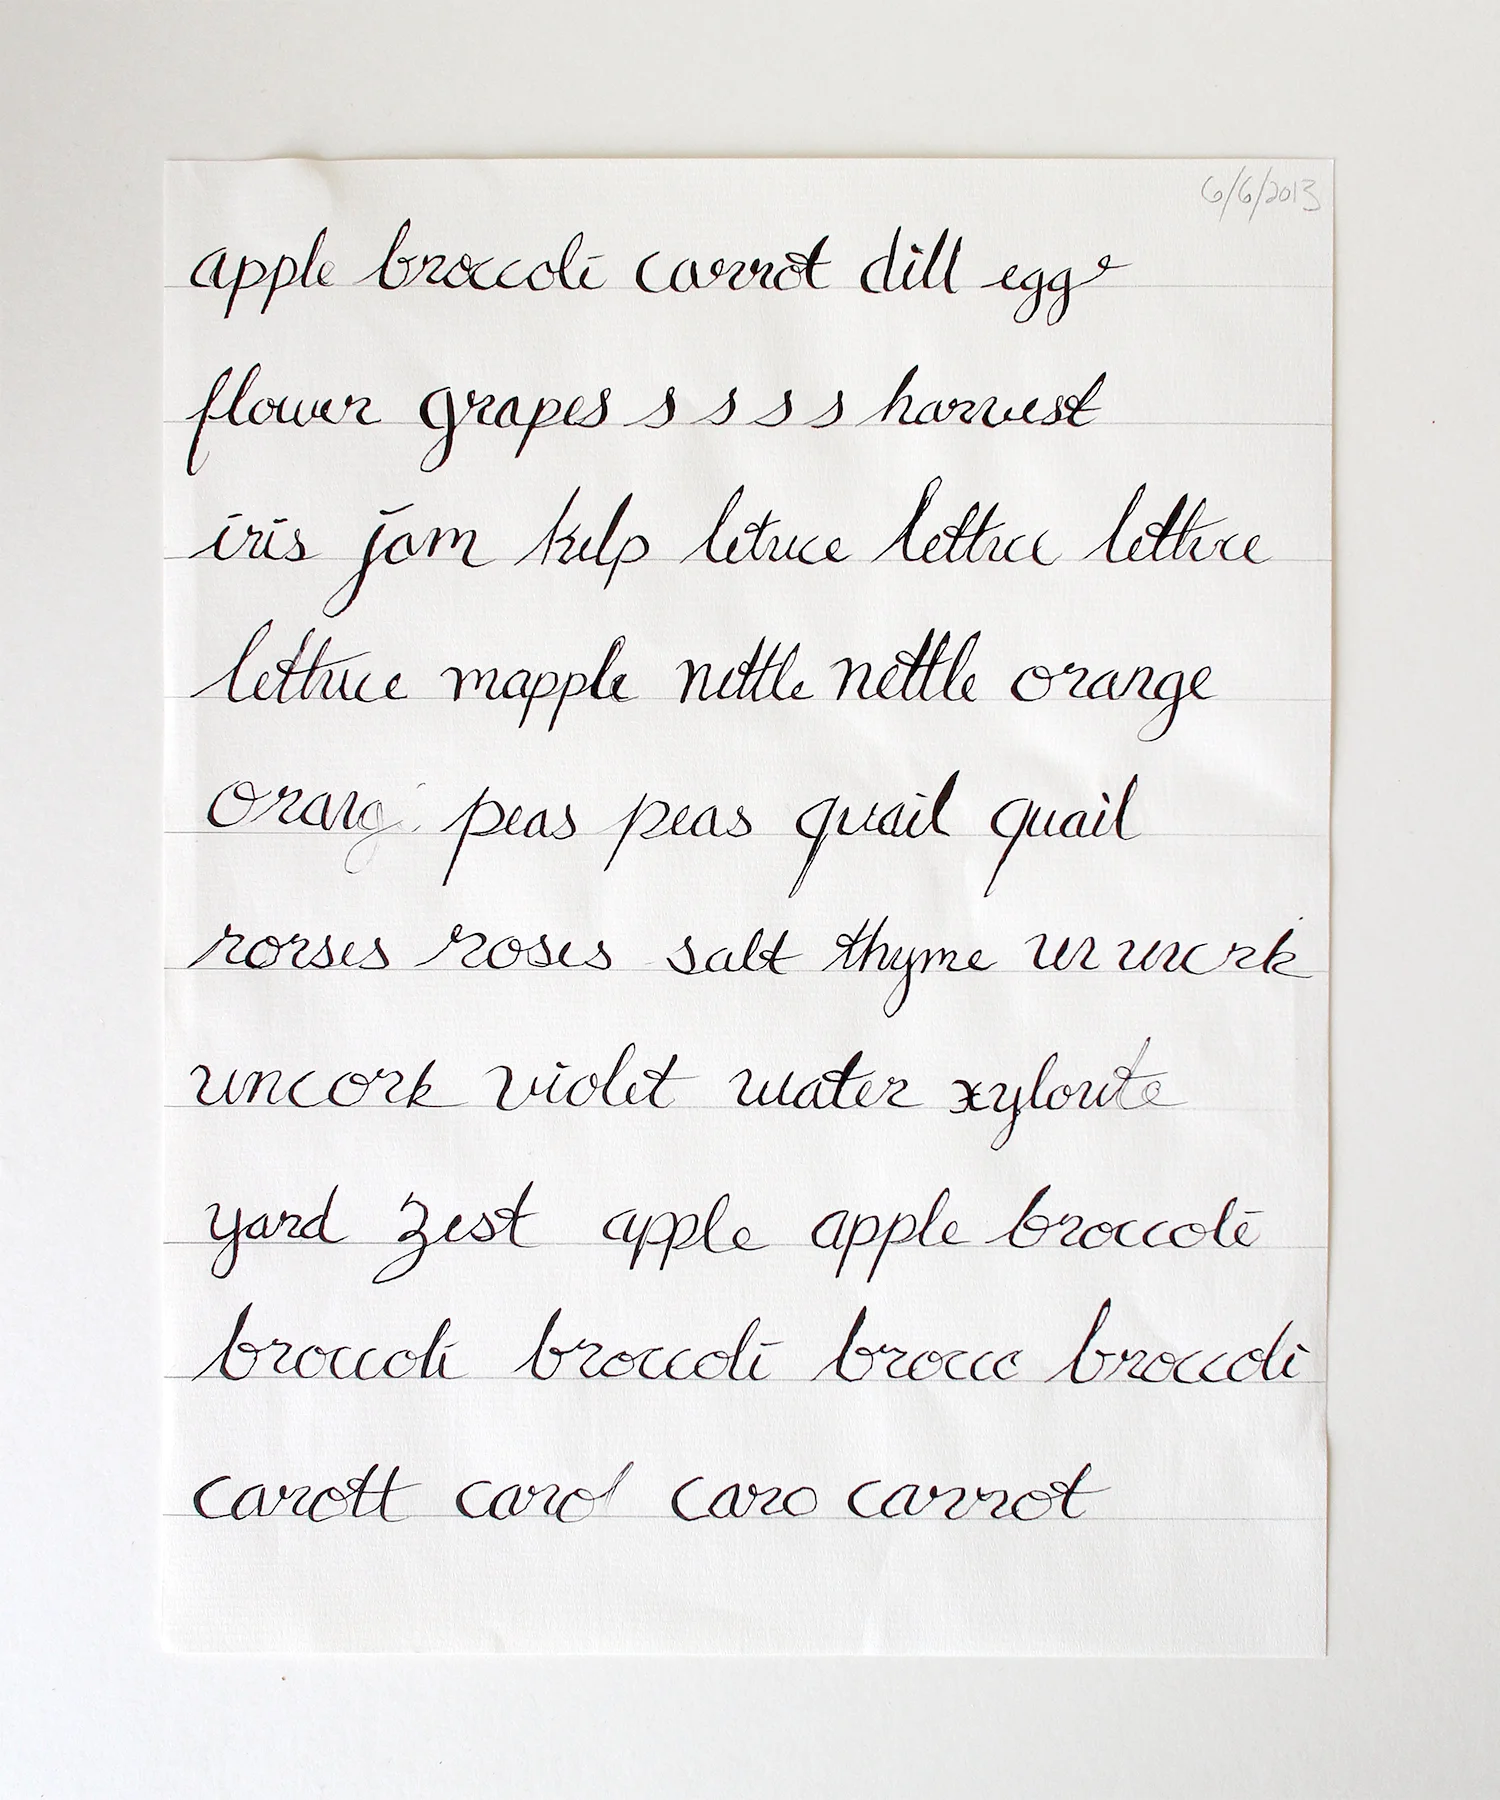 6/6/2013
apple broccoli carrot dill eggs
flower grapes s s s s harvest
iris jam kelp letuce lettuce lettuce
lettuce mapple nettle nettle orange
orang peas peas quail quail
rorses roses salt thyme un uncrk
uncork violet water
yard zest apple apple broccoli
broccoli broccoli brocco broccoli
carott carot caro carrot